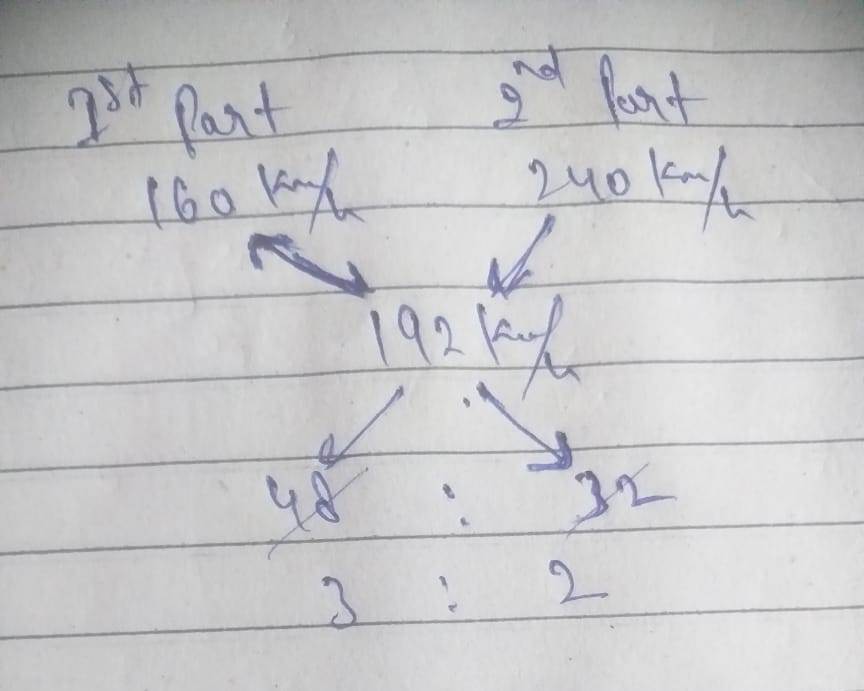 1st Part 2nd Part
160 Km/h 240 Km/h
192 Km/h
48 : 32
3 : 2